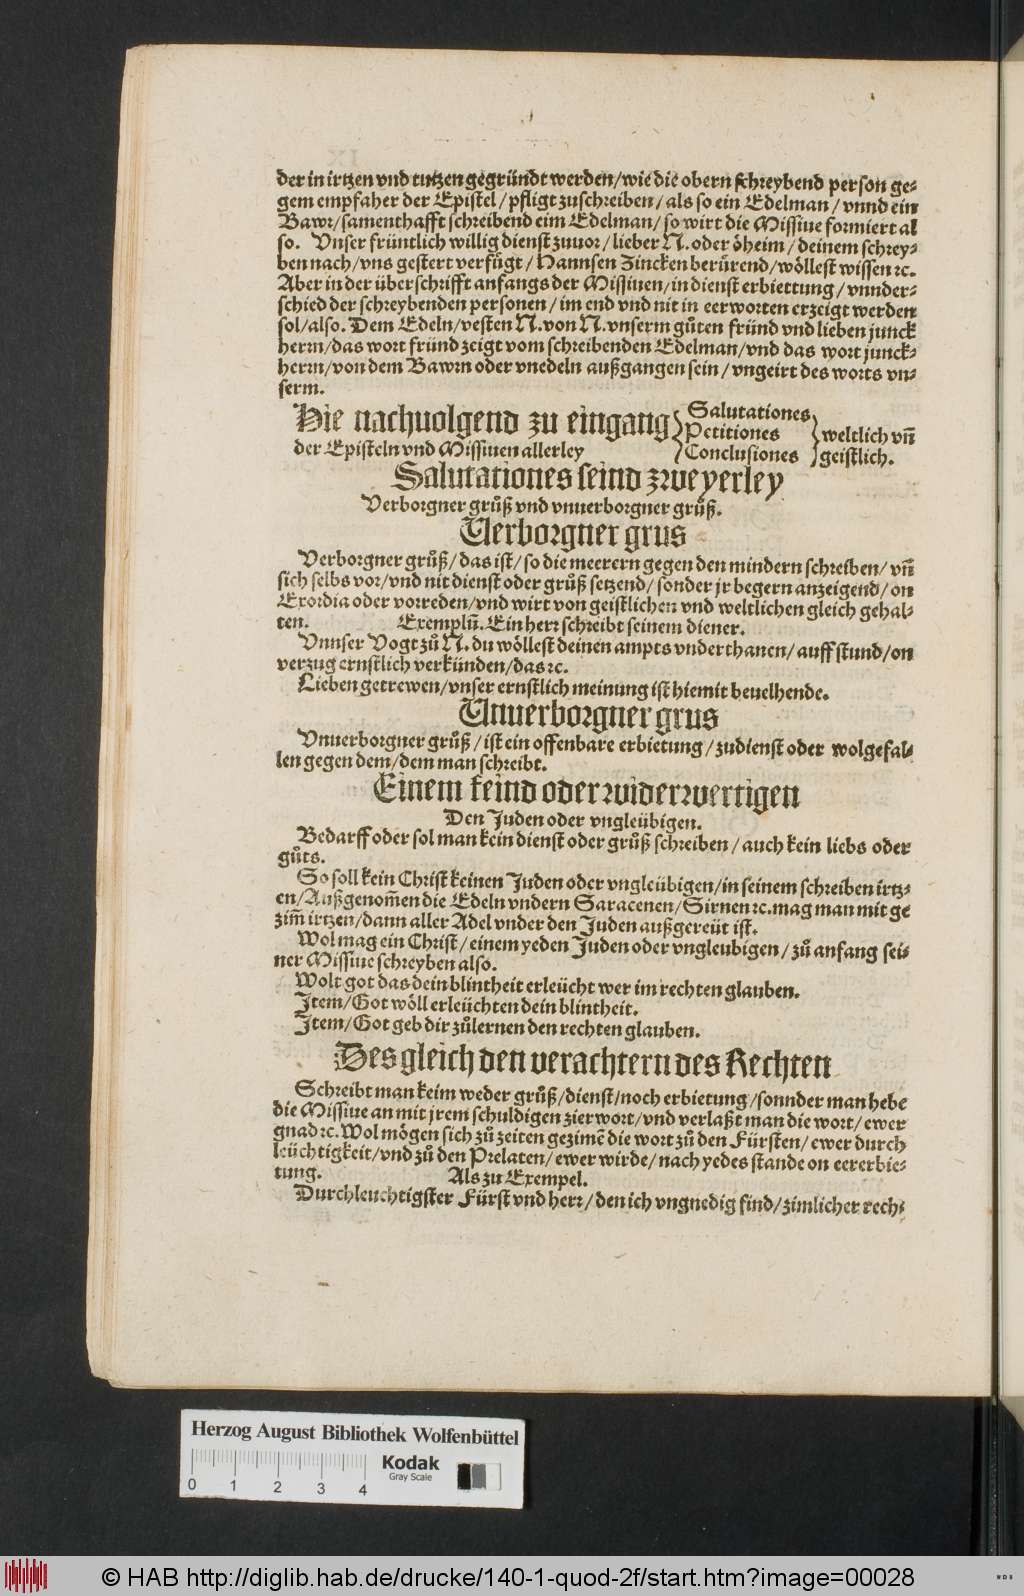 der in irtzen vnd tutzen gegründt werden/wie die obern schreybend person ge⸗
gem empfaher der Epistel/pfligt zuschreiben/als so ein Edelman/vnnd ein
Bawr/samenthafft schreibend eim Edelman/so wirt die Missiue formiert al
so. Vnser früntlich willig dienst zuuor/lieber N. oder öheim/deinem schrey⸗
ben nach/vns gestert verfügt/Hannsen Zincken berürend/wöllest wissen ꝛc.
Aber in der überschrifft anfangs der Missiuen/in dienst erbiettung/vnnder⸗
schied der schreybenden personen/im end vnd nit in eerworten erzeigt werden
sol/also. Dem Edeln/vesten N. von N. vnserm gůten fründ vnd lieben junck
herrn/das wort fründ zeigt vom schreibenden Edelman/vnd das wort junck⸗
herrn/von dem Bawrn oder vnedeln außgangen sein/vngeirt des worts vn⸗
serm.
Hie nachuolgend zu eingang Salutationes
Petitiones weltlich vñ
der Episteln vnd Missiuen allerley Conclusiones geistlich.
Salutationes seind zweyerley
Verborgner grůß vnd vnuerborgner grůß.
Uerborgner grus
Verborgner grůß/das ist/so die meerern gegen den mindern schreiben/vñ
sich selbs vor/vnd nit dienst oder grůß setzend/sonder jr begern anzeigend/on
Exordia oder vorreden/vnd wirt von geistlichen vnd weltlichen gleich gehal⸗
ten. Exemplū. Ein herr schreibt seinem diener.
Vnnser Vogt zů N. du wöllest deinen ampts vnderthanen/auff stund/on
verzug ernstlich verkünden/das ꝛc.
Lieben getrewen/vnser ernstlich meinung ist hiemit beuelhende.
Unuerborgner grus
Vnuerborgner grůß/ist ein offenbare erbietung/zudienst oder wolgefal⸗
len gegen dem/dem man schreibt.
Einem feind oder widerwertigen
Den Juden oder vngleübigen.
Bedarff oder sol man kein dienst oder grůß schreiben/auch kein liebs oder
gůts.
So soll kein Christ keinen Juden oder vngleübigen/in seinem schreiben irtz⸗
en/Außgenom̄en die Edeln vndern Saracenen/Sirnen ꝛc. mag man mit ge
zim̄ irtzen/dann aller Adel vnder den Juden außgereüt ist.
Wol mag ein Christ/einem yeden Juden oder vngleubigen/zů anfang sei⸗
ner Missiue schreyben also.
Wolt got das dein blintheit erleücht wer im rechten glauben.
Item/Got wöll erleüchten dein blintheit.
Item/Got geb dir zůlernen den rechten glauben.
Desgleich den verachtern des Rechten
Schreibt man keim weder grůß/dienst/noch erbietung/sonnder man hebe
die Missiue an mit jrem schuldigen zierwort/vnd verlaßt man die wort/ewer
gnad ꝛc. Wol mögen sich zů zeiten gezimē die wort zů den Fürsten/ewer durch
leüchtigkeit/vnd zů den Prelaten/ewer wirde/nach yedes stande on eererbie⸗
tung. Als zu Exempel.
Durchleuchtigster Fürst vnd herr/den ich vngnedig find/zimlicher rech⸗
Herzog August Bibliothek Wolfenbüttel
Kodak
Gray Scale
0 1 2 3 4
© HAB http://diglib.hab.de/drucke/140-1-quod-2f/start.htm?image=00028